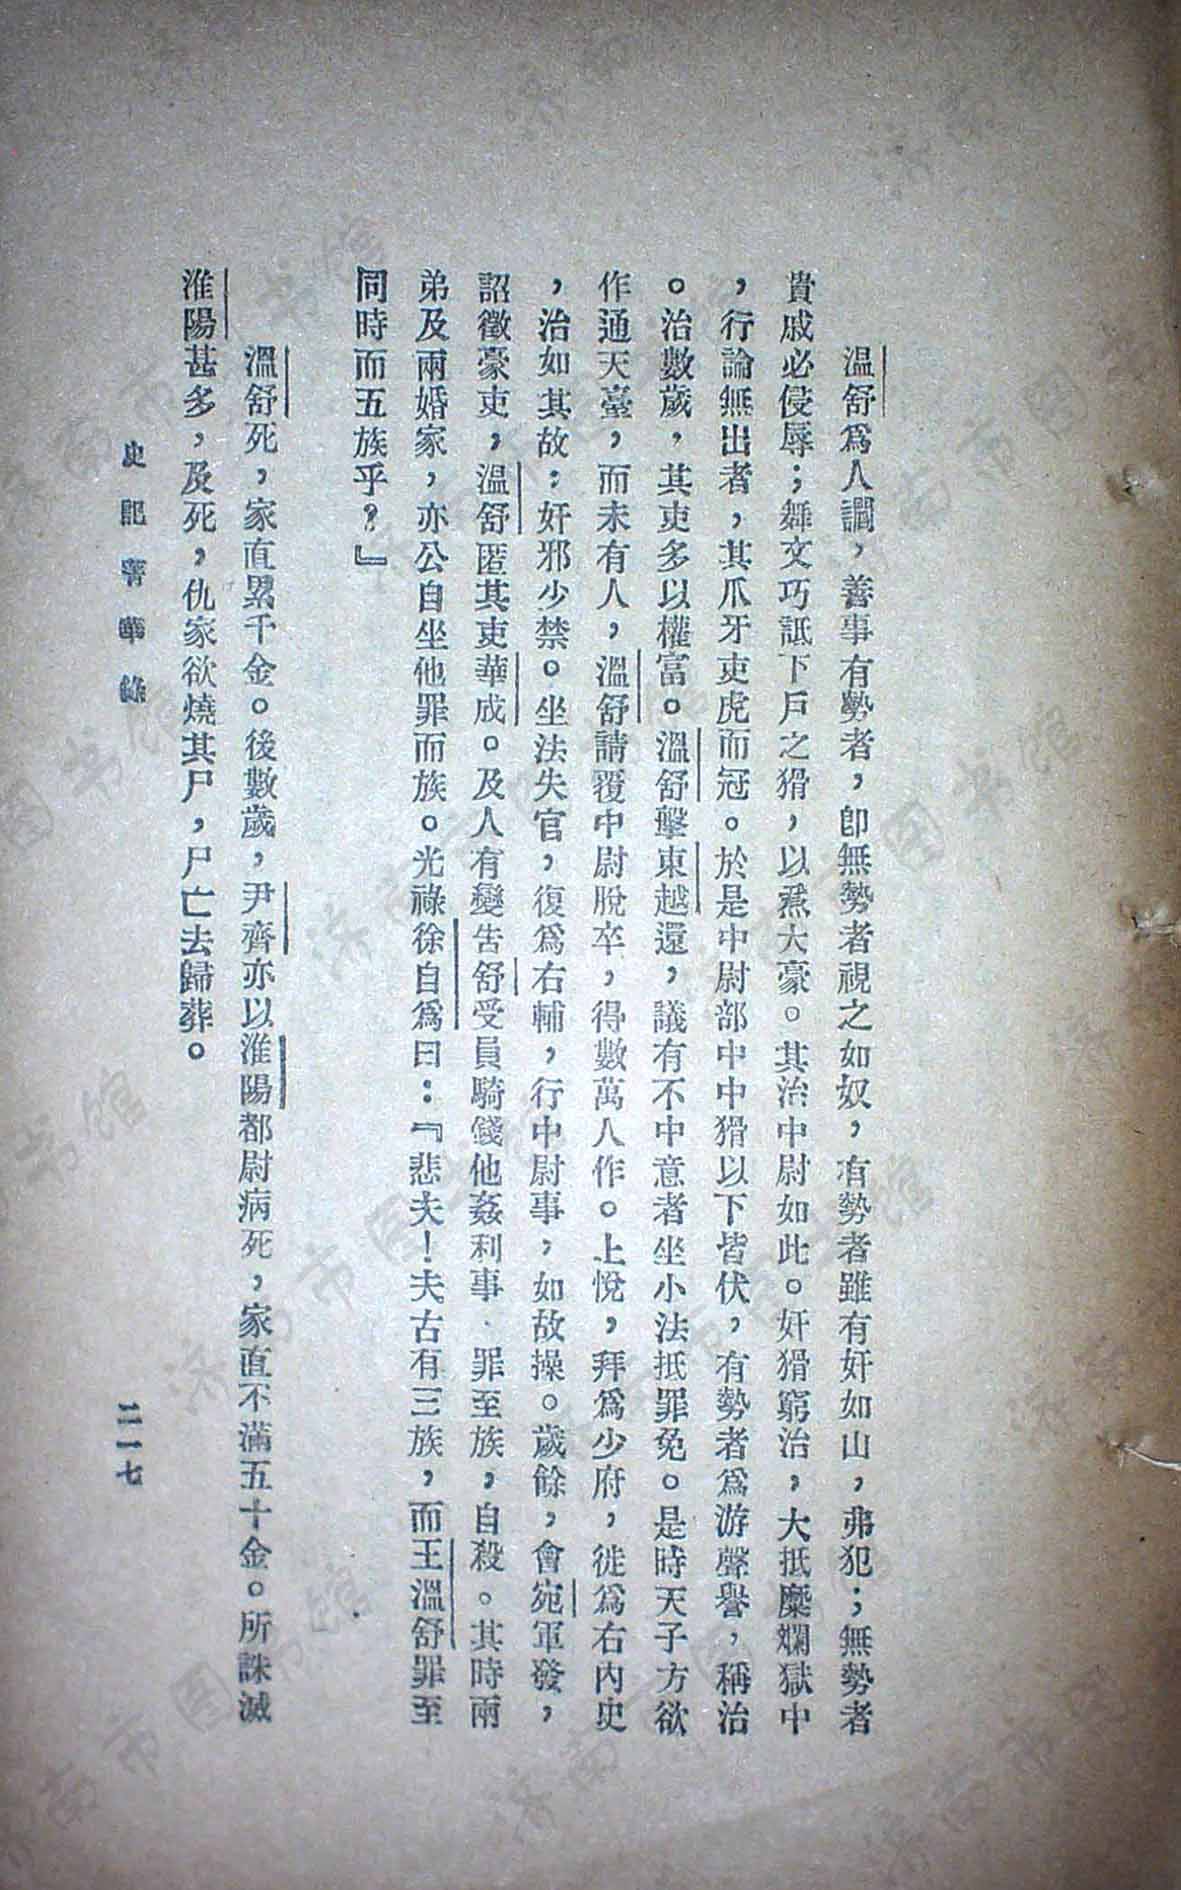 溫舒爲人讇，善事有勢者，卽無勢者視之如奴，有勢者雖有奸如山，弗犯；無勢者
貴戚必侵辱；舞文巧詆下戶之猾，以焄大豪。其治中尉如此。奸猾窮治，大抵糜爛獄中
，行論無出者，其爪牙吏虎而冠。於是中尉部中中猾以下皆伏，有勢者爲游聲譽，稱治
。治數歲，其吏多以權富。溫舒擊東越還，議有不中意者坐小法抵罪免。是時天子方欲
作通天臺，而未有人，溫舒請覆中尉脫卒，得數萬人作。上悅，拜爲少府，徙爲右內史
，治如其故；奸邪少禁。坐法失官，復爲右輔，行中尉事，如故操。歲餘，會宛軍發，
詔徵豪吏，溫舒匿其吏華成。及人有變告舒受員騎錢他姦利事．罪至族，自殺。其時兩
弟及兩婚家，亦公自坐他罪而族。光祿徐自爲曰：『悲夫！夫古有三族，而王溫舒罪至
同時而五族乎？』
溫舒死，家直累千金。後數歲，尹齊亦以淮陽都尉病死，家直不滿五十金。所誅滅
淮陽甚多，及死，仇家欲燒其尸，尸亡去歸葬。
史記菁華錄
二一七
济南市图书馆